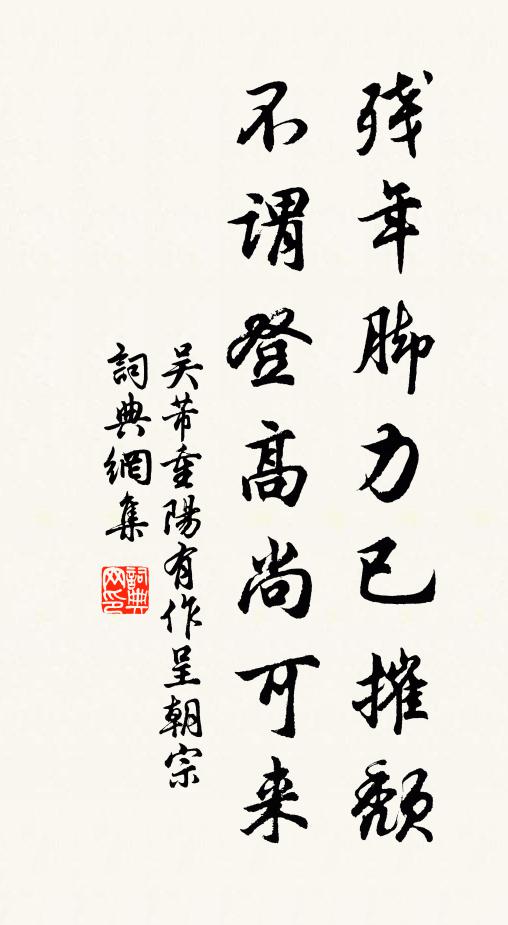 残年脚力已摧颓
不谓登高尚可来
吴芾重陽有作呈朝宗
詞典網集
詞典网印